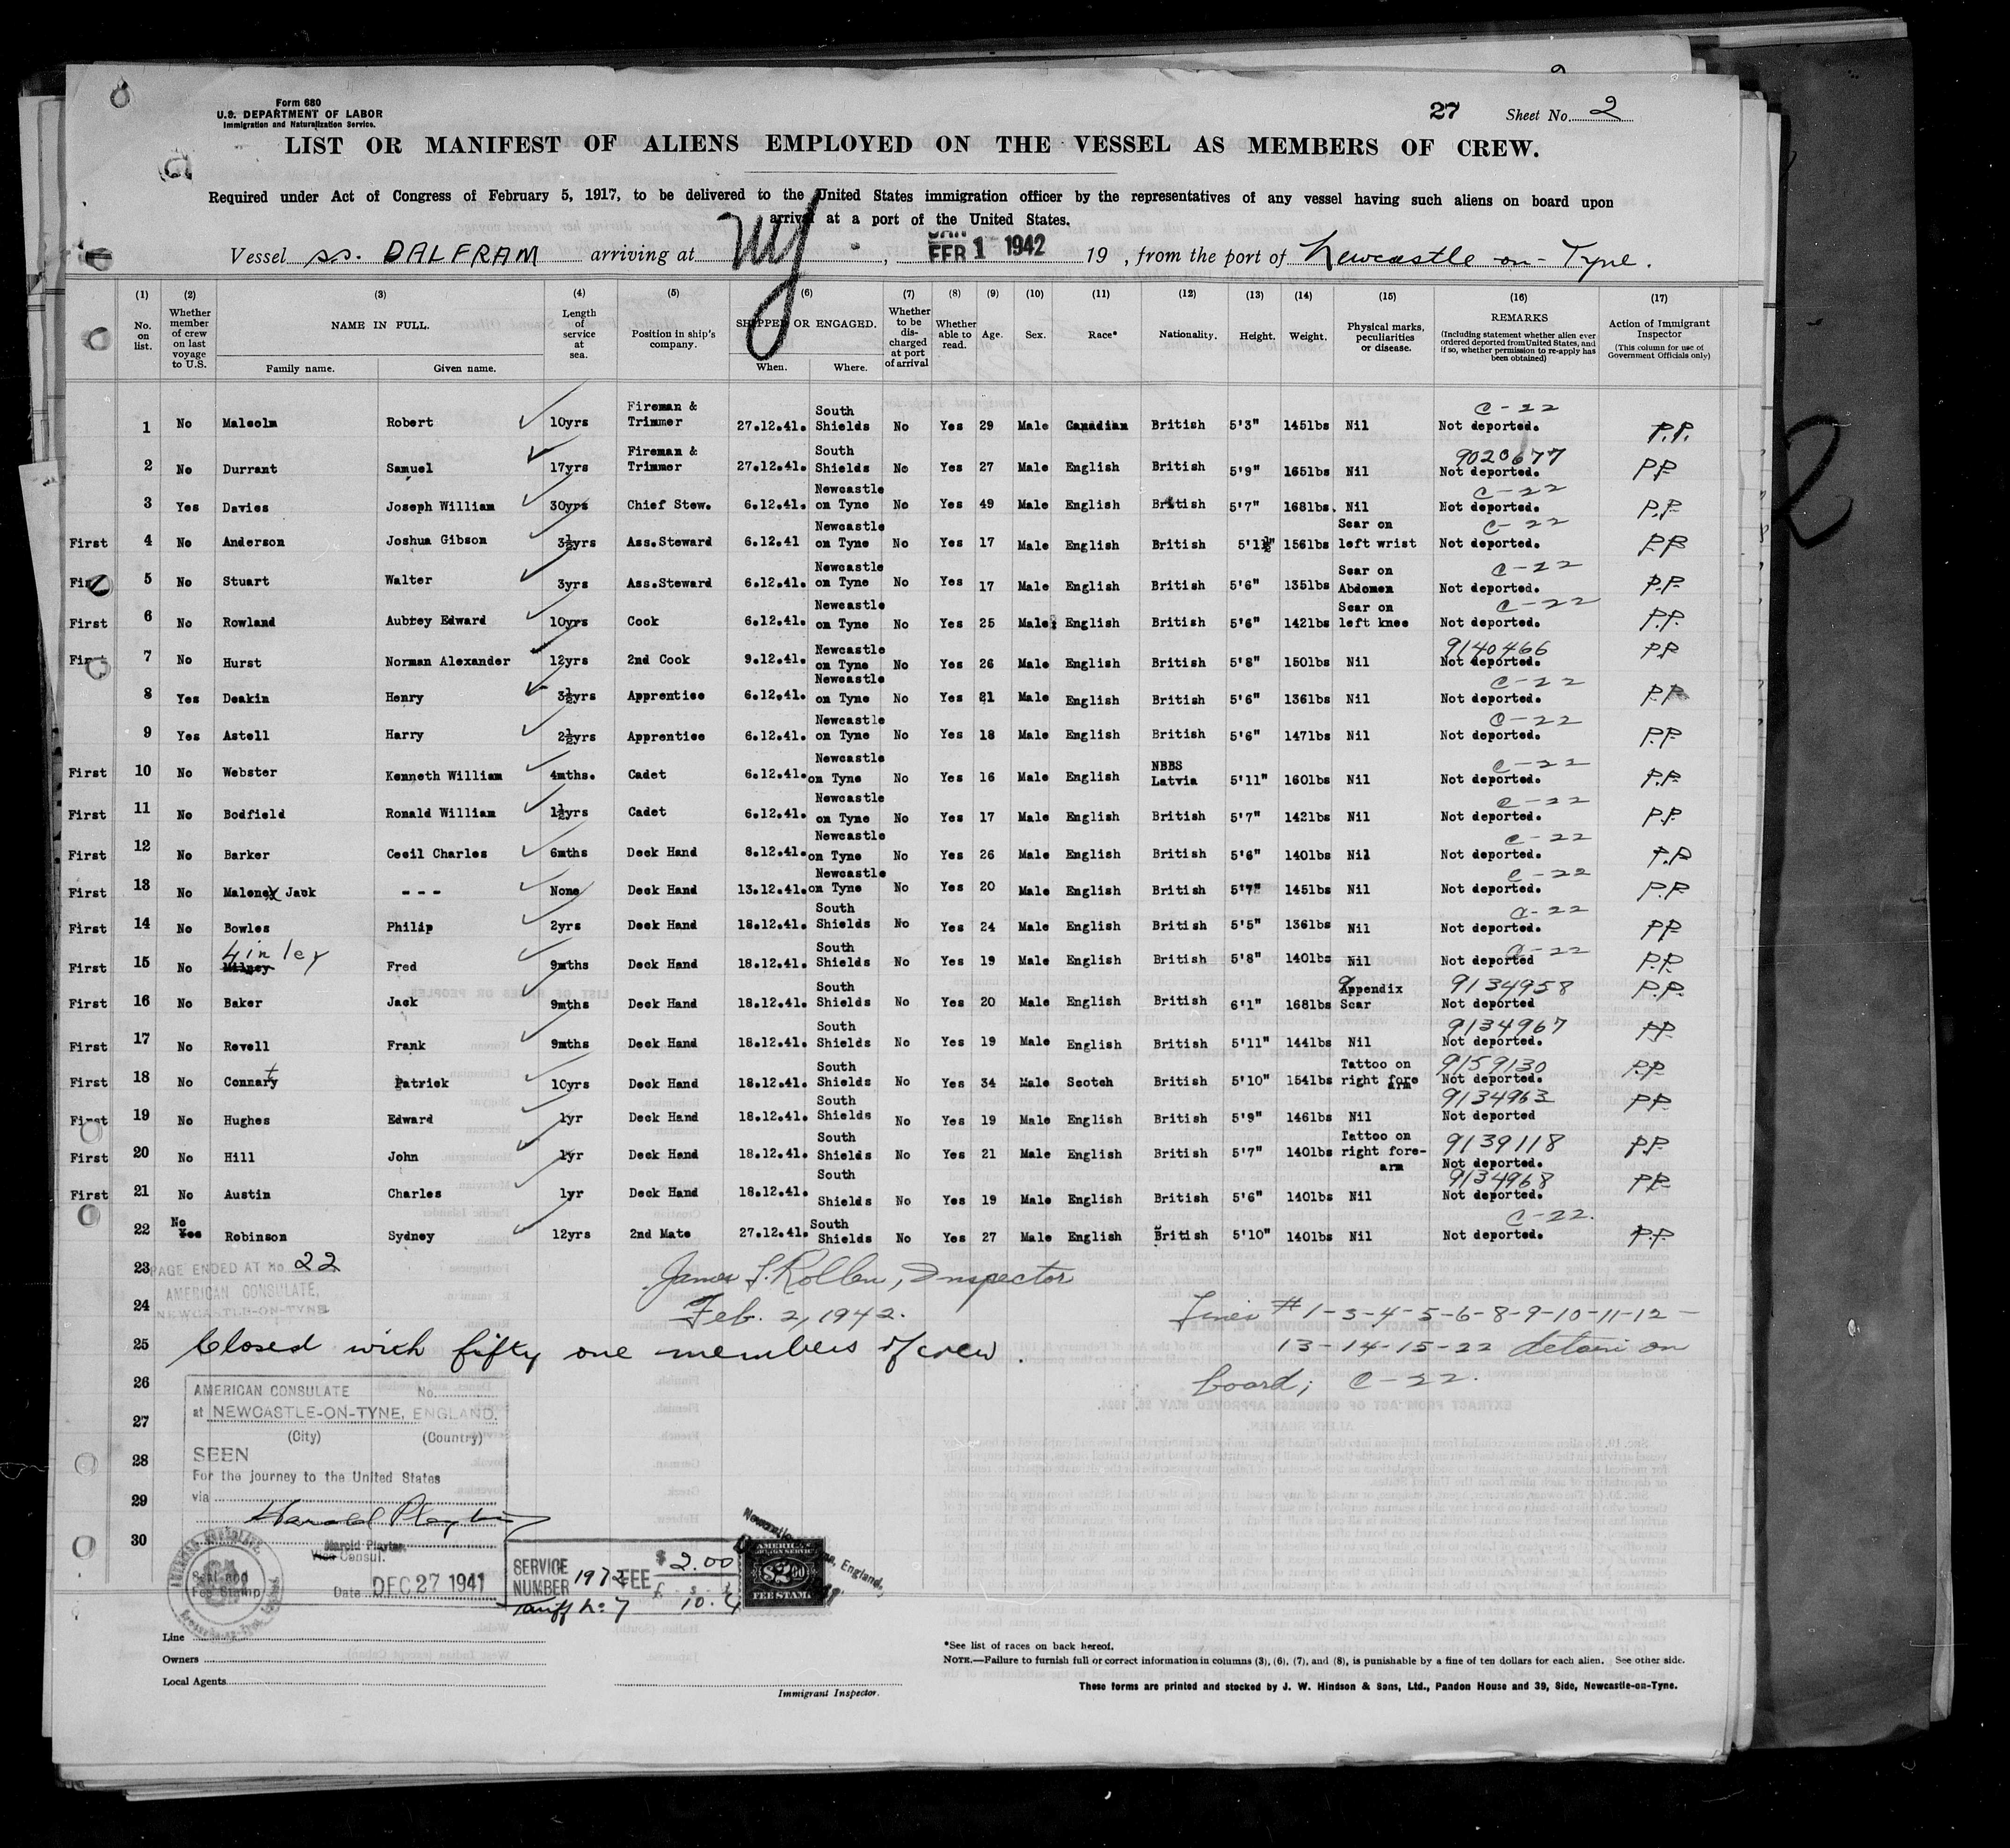 Form 680
U.S. DEPARTMENT OF LABOR
Immigration and Naturalization Service.
27 Sheet No. 2
LIST OR MANIFEST OF ALIENS EMPLOYED ON THE VESSEL AS MEMBERS OF CREW.
Required under Act of Congress of February 5, 1917, to be delivered to the United States immigration officer by the representatives of any vessel having such aliens on board upon
arrival at a port of the United States.
Vessel ss. DALFRAM arriving at NY. , FEB 1 1942 19 , from the port of Newcastle-on-Tyne.
(1) No. on list. (2) Whether member of crew on last voyage to U.S. (3) NAME IN FULL. Family name. Given name. (4) Length of service at sea. (5) Position in ship's company. (6) SHIPPED OR ENGAGED. When. Where. (7) Whether to be discharged at port of arrival (8) Whether able to read. (9) Age. (10) Sex. (11) Race* (12) Nationality. (13) Height. (14) Weight. (15) Physical marks, peculiarities or disease. (16) REMARKS (Including statement whether alien ever ordered deported from United States, and if so, whether permission to re-apply has been obtained) (17) Action of Immigrant Inspector (This column for use of Government Officials only)
1 No Malcolm Robert 10yrs Fireman & Trimmer 27.12.41. South Shields No Yes 29 Male Canadian British 5'3" 145lbs Nil C-22 Not deported. P.P.
2 No Durrant Samuel 17yrs Fireman & Trimmer 27.12.41. South Shields No Yes 27 Male English British 5'9" 165lbs Nil 9020677 Not deported. PP
3 Yes Davies Joseph William 30yrs Chief Stew. 6.12.41. Newcastle on Tyne No Yes 49 Male English British 5'7" 168lbs. Nil C-22 Not deported. P.P
First 4 No Anderson Joshua Gibson 3½yrs Ass.Steward 6.12.41 Newcastle on Tyne No Yes 17 Male English British 5'1½" 156lbs Scar on left wrist C-22 Not deported. PP
First 5 No Stuart Walter 3yrs Ass.Steward 6.12.41. Newcastle on Tyne No Yes 17 Male English British 5'6" 135lbs Scar on Abdomen C-22 Not deported. P.P
First 6 No Rowland Aubrey Edward 10yrs Cook 6.12.41. Newcastle on Tyne No Yes 25 Male English British 5'6" 142lbs Scar on left knee C-22 Not deported. P.P.
First 7 No Hurst Norman Alexander 12yrs 2nd Cook 9.12.41. Newcastle on Tyne No Yes 26 Male English British 5'8" 150lbs Nil 9140466 Not deported. PP
8 Yes Deakin Henry 3½yrs Apprentice 6.12.41. Newcastle on Tyne No Yes 21 Male English British 5'6" 136lbs Nil C-22 Not deported. P.P.
9 Yes Astell Harry 2½yrs Apprentice 6.12.41. Newcastle on Tyne No Yes 18 Male English British 5'6" 147lbs Nil C-22 Not deported. P.P
First 10 No Webster Kenneth William 4mths. Cadet 6.12.41. Newcastle on Tyne No Yes 16 Male English NBBS Latvia 5'11" 160lbs Nil C-22 Not deported. P.P.
First 11 No Bodfield Ronald William 1½yrs Cadet 6.12.41. Newcastle on Tyne No Yes 17 Male English British 5'7" 142lbs Nil C-22 Not deported. P.P
First 12 No Barker Cecil Charles 6mths Deck Hand 8.12.41. Newcastle on Tyne No Yes 26 Male English British 5'6" 140lbs Nil C-22 Not deported. P.P
First 13 No Maloney Jack --- None Deck Hand 13.12.41. Newcastle on Tyne No Yes 20 Male English British 5'7" 145lbs Nil C-22 Not deported. P.P.
First 14 No Bowles Philip 2yrs Deck Hand 18.12.41. South Shields No Yes 24 Male English British 5'5" 136lbs Nil C-22 Not deported. PP
First 15 No Linley Milney Fred 9mths Deck Hand 18.12.41. South Shields No Yes 19 Male English British 5'8" 140lbs Nil C-22 Not deported P.P.
First 16 No Baker Jack 9mths Deck Hand 18.12.41. South Shields No Yes 20 Male English British 6'1" 168lbs Appendix Scar 9134958 Not deported P.P.
First 17 No Revell Frank 9mths Deck Hand 18.12.41. South Shields No Yes 19 Male English British 5'11" 144lbs Nil 9134967 Not deported. PP.
First 18 No Connarty Patrick 10yrs Deck Hand 18.12.41. South Shields No Yes 34 Male Scotch British 5'10" 154lbs Tattoo on right fore arm 9159130 Not deported. P.P
First 19 No Hughes Edward 1yr Deck Hand 18.12.41. South Shields No Yes 19 Male English British 5'9" 146lbs Nil 9134963 Not deported PP.
First 20 No Hill John 1yr Deck Hand 18.12.41. South Shields No Yes 21 Male English British 5'7" 140lbs Tattoo on right fore-arm 9139118 Not deported. PP
First 21 No Austin Charles 1yr Deck Hand 18.12.41. South Shields No Yes 19 Male English British 5'6" 140lbs Nil 9134968 Not deported. PP
22 No Yes Robinson Sydney 12yrs 2nd Mate 27.12.41. South Shields No Yes 27 Male English British 5'10" 140lbs Nil C-22. Not deported. P.P
23 PAGE ENDED AT No. 22
AMERICAN CONSULATE,
NEWCASTLE-ON-TYNE
James S. Rollen, Inspector
24 Feb. 2, 1942.
Lines # 1-3-4-5-6-8-9-10-11-12-
13-14-15-22 detain on
board; C-22.
25 Closed with fifty one members of crew.
26
27
28
29
30
AMERICAN CONSULATE No.
at NEWCASTLE-ON-TYNE, ENGLAND.
(City) (Country)
SEEN
For the journey to the United States
via
Harold Playter
Harold Playter
Vice Consul.
Seal and
Fee Stamp
Date DEC 27 1941
SERVICE NUMBER 1972 FEE $ 2.00
£ - s - d
Tariff No 7 10.4
AMERICAN
FOREIGN SERVICE
$2.00
FEE STAMP
Line
Owners
Local Agents
Immigrant Inspector.
*See list of races on back hereof.
NOTE.—Failure to furnish full or correct information in columns (3), (6), (7), and (8), is punishable by a fine of ten dollars for each alien. See other side.
These forms are printed and stocked by J. W. Hindson & Sons, Ltd., Pandon House and 39, Side, Newcastle-on-Tyne.